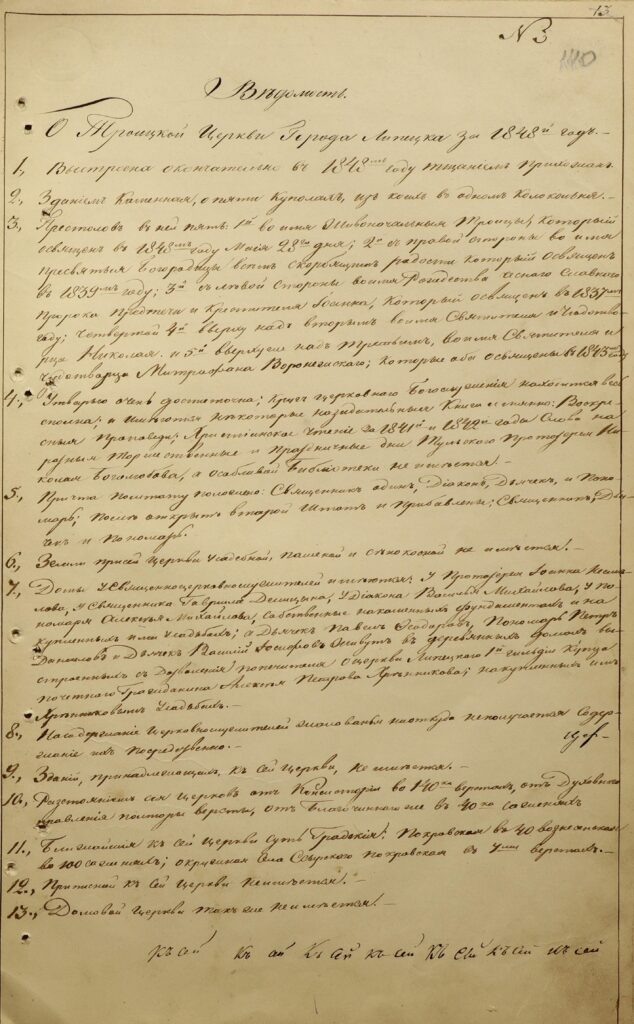 13
№ 3
Вѣдомость.
О Троицкой Церкви Города Липецка за 1848й годъ.
1., Выстроена окончательно въ 1848мъ году тщанiемъ Прихожанъ.
2., Зданiемъ Каменная, о пяти Куполахъ, изъ коихъ въ одномъ Колокольня.
3., Престоловъ въ ней пять: 1й во имя Живоначальныя Троицы, который
освященъ въ 1848мъ году Маiя 23го дня; 2й съ правой стороны во имя
пресвятыя Богородицы всѣхъ скорбящихъ радости который Освященъ
въ 1839мъ году; 3й съ лѣвой стороны во имя Рождества Славнаго
Пророка Предтечи и Крестителя Iоанна, Который освященъ въ 1837мъ
году; Четвертой 4й вверху надъ вторымъ во имя Святителя и Чудотвор
ца Николая. и 5й вверху же надъ третьимъ, во имя Святителя и
Чудотворца Митрофана Воронежскаго; которые оба освящены въ 1843мъ году
4., Утварью очень достаточна; Кругъ Церковнаго Богослуженiя находится весь
сполна; и имѣются нѣкоторые назидательныя Книги именно: Воскре-
сныя Проповеди; Христiанское Чтенiе за 1841й и 1842й года Слова на
разныя Торжественные и Праздничные дни Тульскаго Протоiерея Ни-
колая Богословова, а особливой Библiотеки не имѣется.
5., Причта по штату положено: Священникъ одинъ, Дiаконъ, Дьячекъ, и Поно-
марь; после открытъ второй Штатъ и прибавлены; Священникъ, Дья-
чекъ и Пономарь.
6., Земли при сей Церкви Усадебной, пашенной и сѣнокосной не имѣется!
7., Домы у Священноцерковнослужителей имѣются: У Протоiерея Iоанна
лова, у Священника Гаврiила у Дiакона Василья Михайлова, У По-
номаря Алексея Михайлова, Собственные на каменныхъ фундаментахъ и на
купленныхъ ими Усадьбахъ; а Дьячекъ Павелъ Ѳедоровъ, Пономарь Петръ
Даниловъ и Дьячекъ Василiй Iосифовъ Живутъ въ деревянныхъ домахъ вы-
строенныхъ съ Дозволенiя попечителя о церкви Липецкаго 1й гильдiи Купца
почетнаго Гражданина Алексея Петрова Хрѣнникова; на купленныхъ имъ
Хрѣнниковымъ Усадьбахъ.
8., На содержанiе Церковнослужителей жалованья ни откуда не получается Содер-
жанiе ихъ Посредственно.
Цер-
9., Зданiй, принадлежащихъ къ сей Церкви, не имѣется.
10., Разстоянiемъ сiя Церковь отъ Консисторiи во 140ка верстахъ, отъ Духовнаго
правленiя полторы версты, отъ Благочиннаго же въ 40ка саженяхъ
11., Ближайшiя къ сей Церкви суть Градскiя: Покровская въ 40 Вознесенская
во 100 саженяхъ; окружная Села Сырскаго Покровская въ 7ми верстахъ.
12., Приписной къ сей Церкви не имѣется!
13., Домовой Церкви также не имѣется!
Къ сей Къ ей Къ сей къ сей Къ сей къ сей къ сей